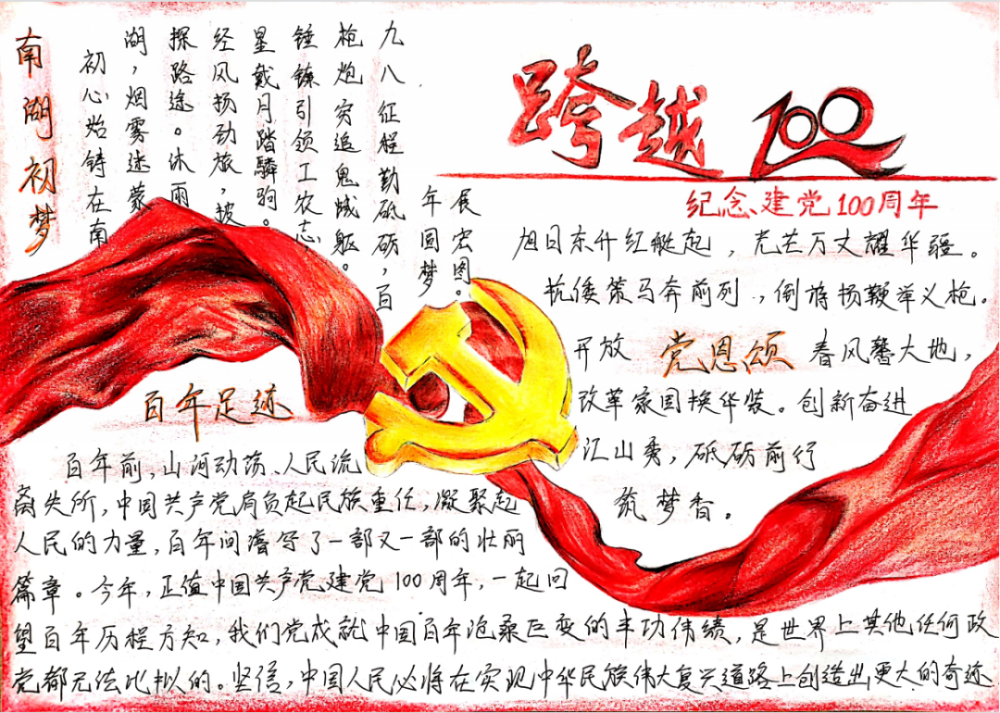 南湖初梦
初心始铸在南
湖，烟雾迷蒙
探路途。沐雨
经风扬劲旅，披
星戴月踏驹。
锤镰引领工农志
枪炮突追鬼蜮躯。
九八征程勤砥砺，百
年圆梦
展宏图。
跨越100
纪念建党100周年
党恩颂
旭日东升红艇起，光芒万丈耀华疆。
抗倭策马奔前列，倒扬鞭举义枪。
开放春风馨大地，
改革家国换华装。创新奋进
汇山秀，砥砺前行
筑梦香。
百年足迹
百年前，山河动荡、人民流
离失所，中国共产党肩负起民族重任，凝聚起
人民的力量，百年间谱写了一部又一部的壮丽
篇章。今年，正值中国共产党建党100周年，一起回
望百年历程方知，我们党成就中国百年沧桑巨变的丰功伟绩，是世界上其他任何政
党都无法比拟的。坚信，中国人民必将在实现中华民族伟大复兴道路上创造出更大的奇迹